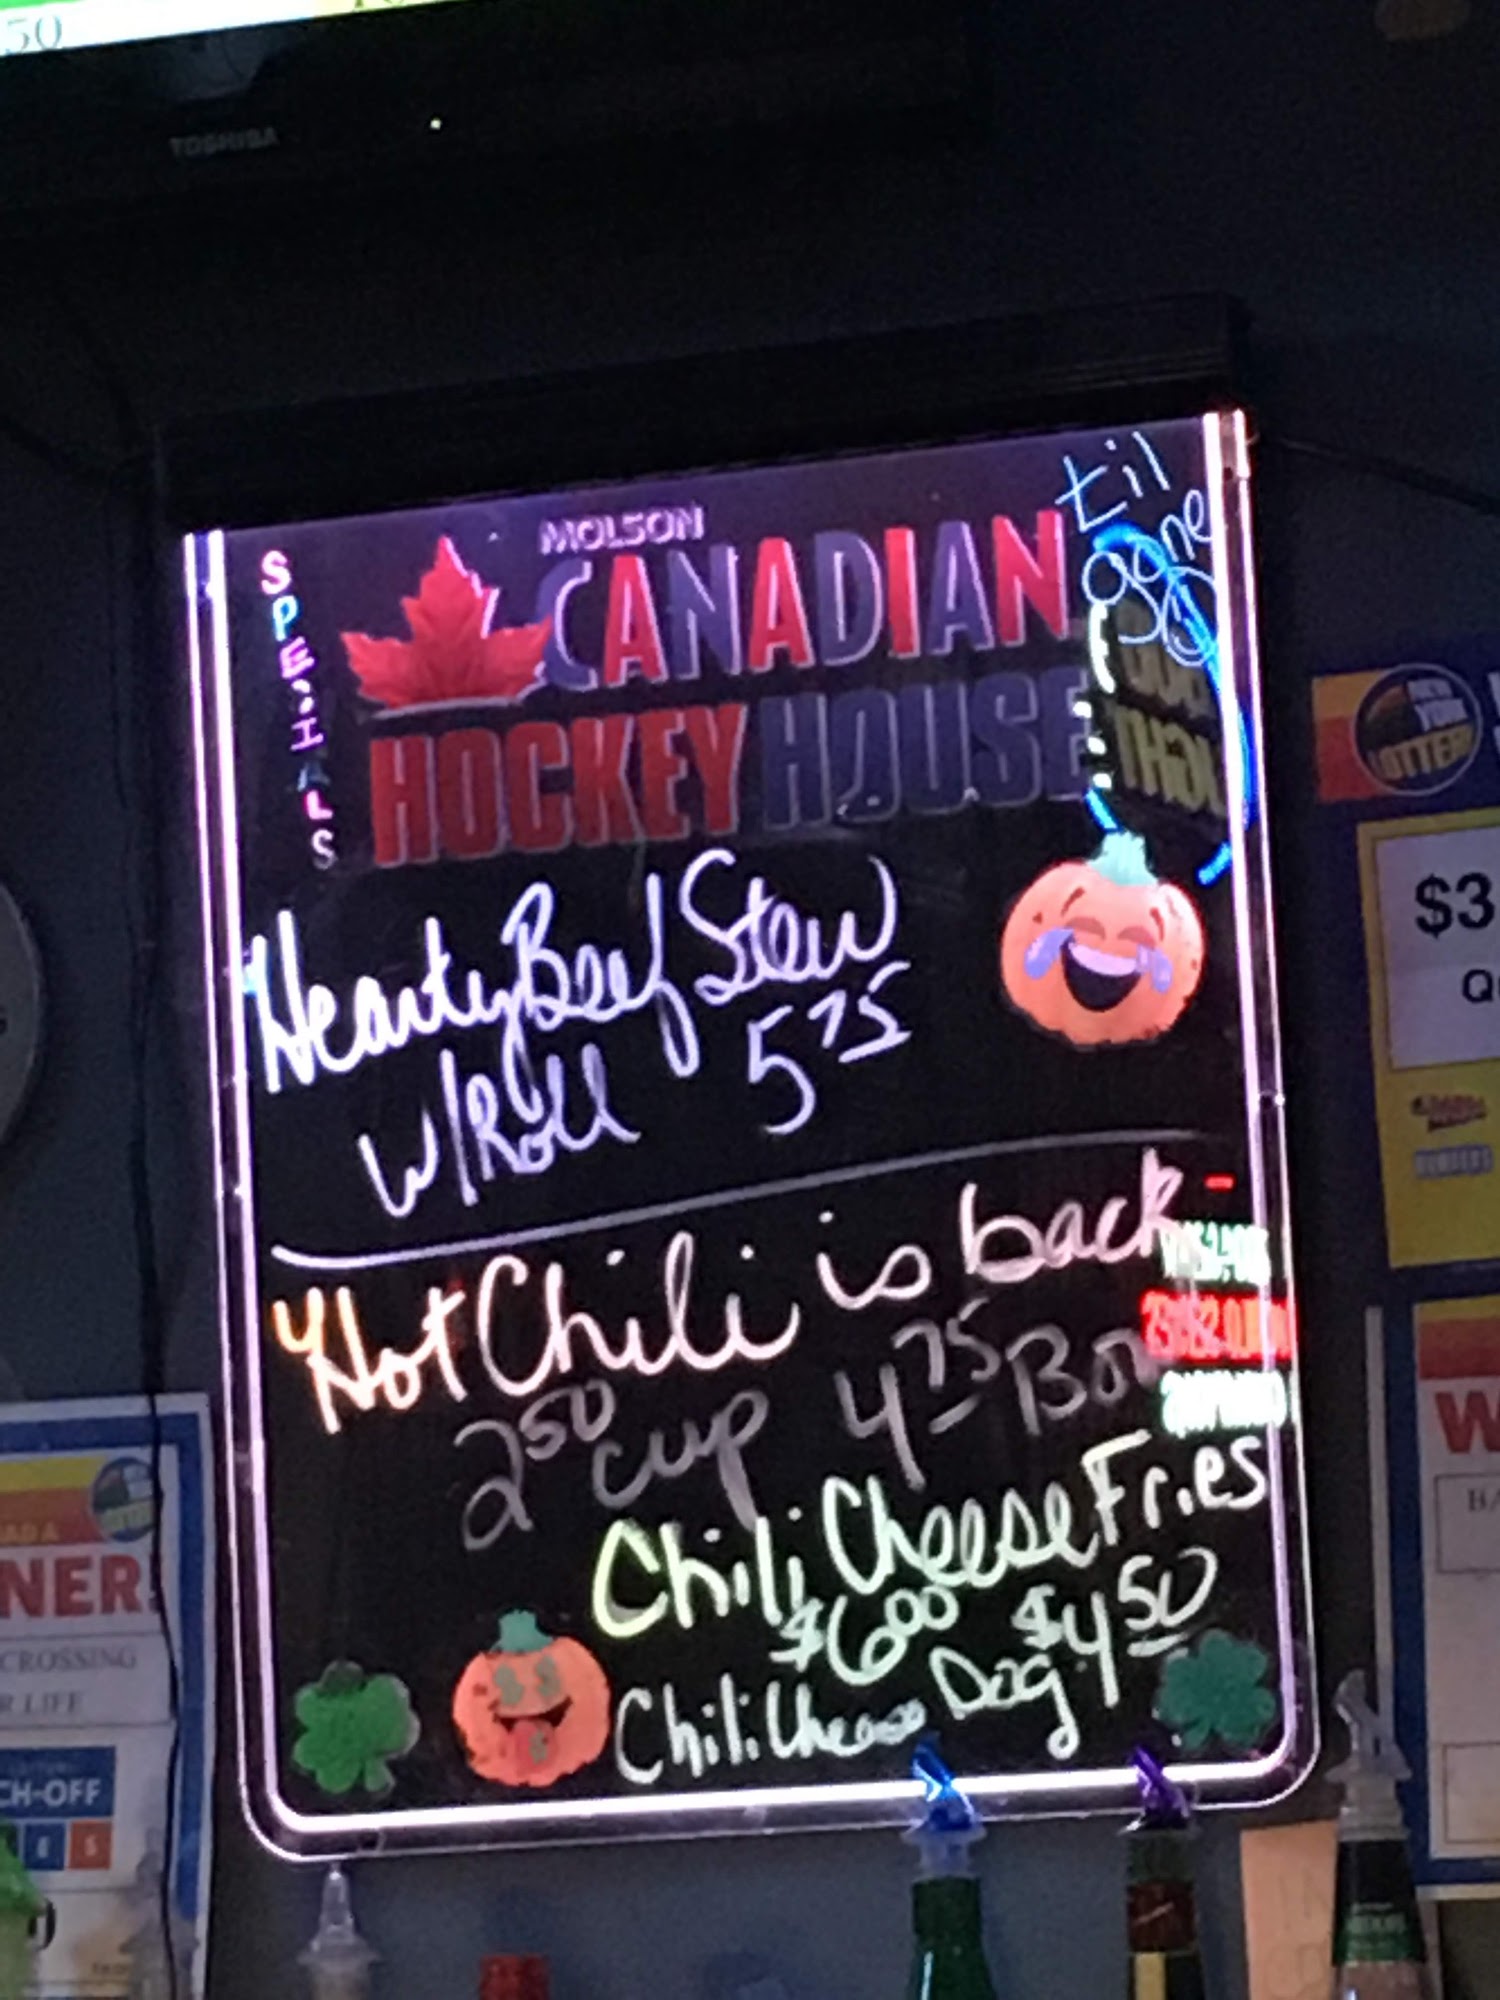 50
TOSHIBA
SPECIALS
til
gone
MOLSON
CANADIAN
HOCKEY HOUSE
Hearty Beef Stew
W/Roll 5 75
Hot Chili is back
2 50 cup 4 75
Chili Cheese Fries
$6 00
Chili Cheese Dog $4 50
NEW
YORK
LOTTERY
$3
NER!
CROSSING
R LIFE
CH-OFF
E S
W